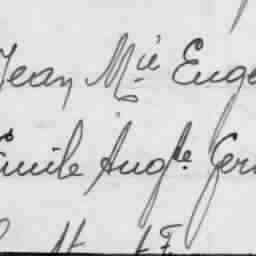 Jean Mie Eugè
Emile Augte Ger